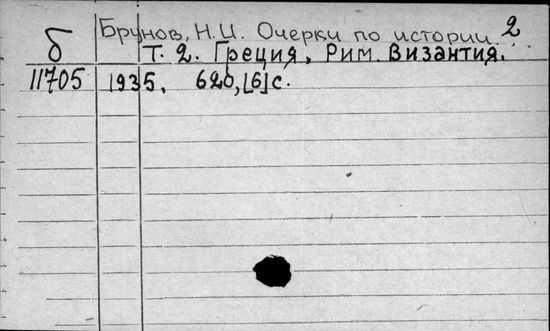 Брунов, Н.И. Очерки по истории 2
б Т. 2. Греция, Рим. Византия.
11705 1935. 620, [6] с.